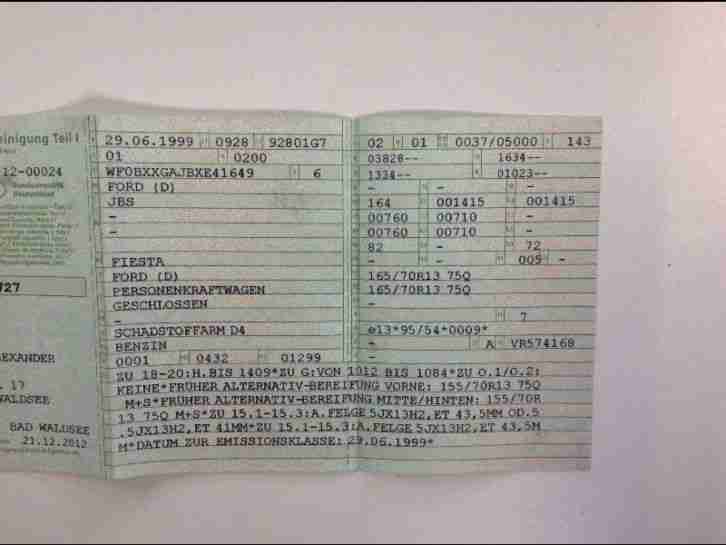 einigung Teil I
12-00024
Bundesrepublik
Deutschland
727
EXANDER
. 17
WALDSEE
BAD WALDSEE
21.12.2012
29.06.1999 0928 92801G7
01 0200
WF0BXXGAJBXE41649 6
FORD (D)
JBS
-
-
FIESTA
FORD (D)
PERSONENKRAFTWAGEN
GESCHLOSSEN
-
SCHADSTOFFARM D4
BENZIN
0001 0432 01299
02 01 0037/05000 143
03828-- 1634--
1334-- 01023--
- - -
164 001415 001415
00760 00710 -
00760 00710 -
82 - 72
- - 005 -
165/70R13 75Q
165/70R13 75Q
-
- 7
e13*95/54*0009*
- A VR574168
-
ZU 18-20:H.BIS 1409*ZU G:VON 1012 BIS 1084*ZU O.1/O.2:
KEINE*FRÜHER ALTERNATIV-BEREIFUNG VORNE: 155/70R13 75Q
M+S*FRÜHER ALTERNATIV-BEREIFUNG MITTE/HINTEN: 155/70R
13 75Q M+S*ZU 15.1-15.3:A.FELGE 5JX13H2,ET 43,5MM OD.5
.5JX13H2,ET 41MM*ZU 15.1-15.3:A.FELGE 5JX13H2,ET 43,5M
M*DATUM ZUR EMISSIONSKLASSE: 29.06.1999*